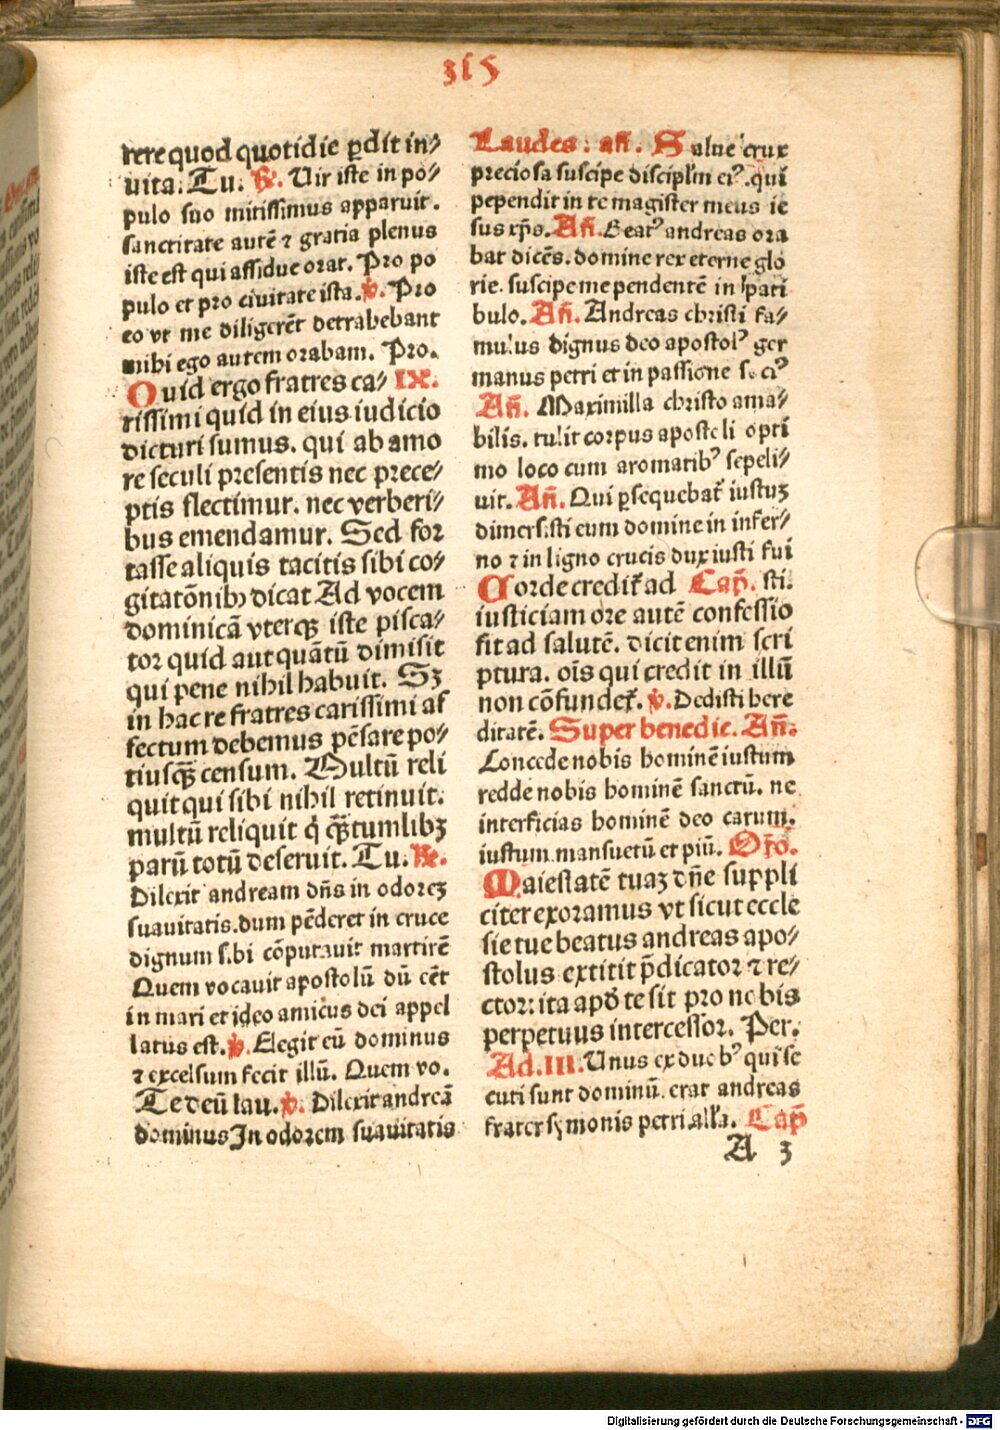 315
rere quod quotidie ꝑdit in⸗
uita. Tu. ℟. Uir iste in po⸗
pulo suo mitissimus apparuit.
sanctitate autē ⁊ gratia plenus
iste est qui assidue orat. Pro po
pulo et pro ciuitate ista. ℣. Pro
eo vt me diligerēt detrahebant
mihi ego autem orabam. Pro.
Quid ergo fratres ca⸗ IX.
rissimi quid in eius iudicio
dicturi sumus. qui ab amo
re seculi presentis nec prece⸗
ptis flectimur. nec verberi⸗
bus emendamur. Sed for
tasse aliquis tacitis sibi co⸗
gitatōnibꝫ dicat Ad vocem
dominicā vterqꝫ iste pisca⸗
tor quid aut quātū dimisit
qui pene nihil habuit. Sꝫ
in hac re fratres carissimi af
fectum debemus pēsare po⸗
tiusqꝫ̄ censum. Multū reli
quit qui sibi nihil retinuit.
multū reliquit q̇ qꝫ̄tumlibꝫ
parū totū deseruit. Tu. ℟.
Dilexit andream dn̄s in odoreꝫ
suauitatis. dum pēderet in cruce
dignum sibi cōputauit martirē
Quem vocauit apostolū dū cēt
in mari et ideo amicus dei appel
latus est. ℣. Elegit eū dominus
⁊ excelsum fecit illū. Quem vo.
Te deū lau. ℣. Dilexit andreā
dominus In odorem suauitatis
Laudes. an̄. Salue crux
preciosa suscipe discipl'm eiꝰ. qui
pependit in te magister meus ie
sus xp̄s. An̄. Beatꝰ andreas ora
bat dicēs. domine rex eterne glo
rie. suscipe me pendentē in hpati
bulo. An̄. Andreas christi fa⸗
mulus dignus deo apostolꝰ ger
manus petri et in passione s. ciꝰ
An̄. Maximilla christo ama⸗
bilis. tulit corpus apostoli opti
mo loco cum aromatibꝰ sepeli⸗
uit. An̄. Qui ꝑsequebat᷑ iustuꝫ
dimersisti eum domine in infer⸗
no ⁊ in ligno crucis dux iusti fui
Corde credit᷑ ad Cap̄. sti.
iusticiam ore autē confessio
fit ad salutē. dicit enim scri
ptura. oīs qui credit in illū
non cōfundet᷑. ℣. Dedisti here
ditatē. Super benedic. An̄.
Concede nobis hominē iustum
redde nobis hominē sanctū. ne
interficias hominē deo carum.
iustum mansuetū et piū. Or̄o.
Maiestatē tuaꝫ dn̄e suppli
citer exoramus vt sicut eccle
sie tue beatus andreas apo⸗
stolus extitit p̄dicator ⁊ re⸗
ctor: ita apđ te sit pro nobis
perpetuus intercessor. Per.
Ad. III. Unus ex duobꝰ qui se
cuti sunt dominū. erat andreas
frater symonis petri. all'a. Cap̄
A 3
Digitalisierung gefördert durch die Deutsche Forschungsgemeinschaft - DFG